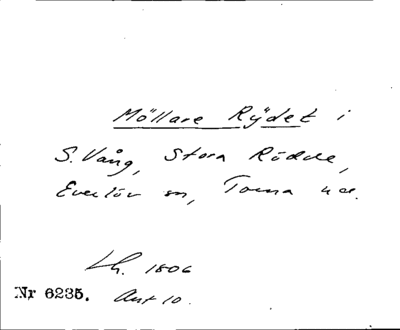 Möllare Rydet i
S. Vång, Stora Rödde,
Everlöv sn, Torna hd.
Lh. 1806
Nr 6235. Akt 10.